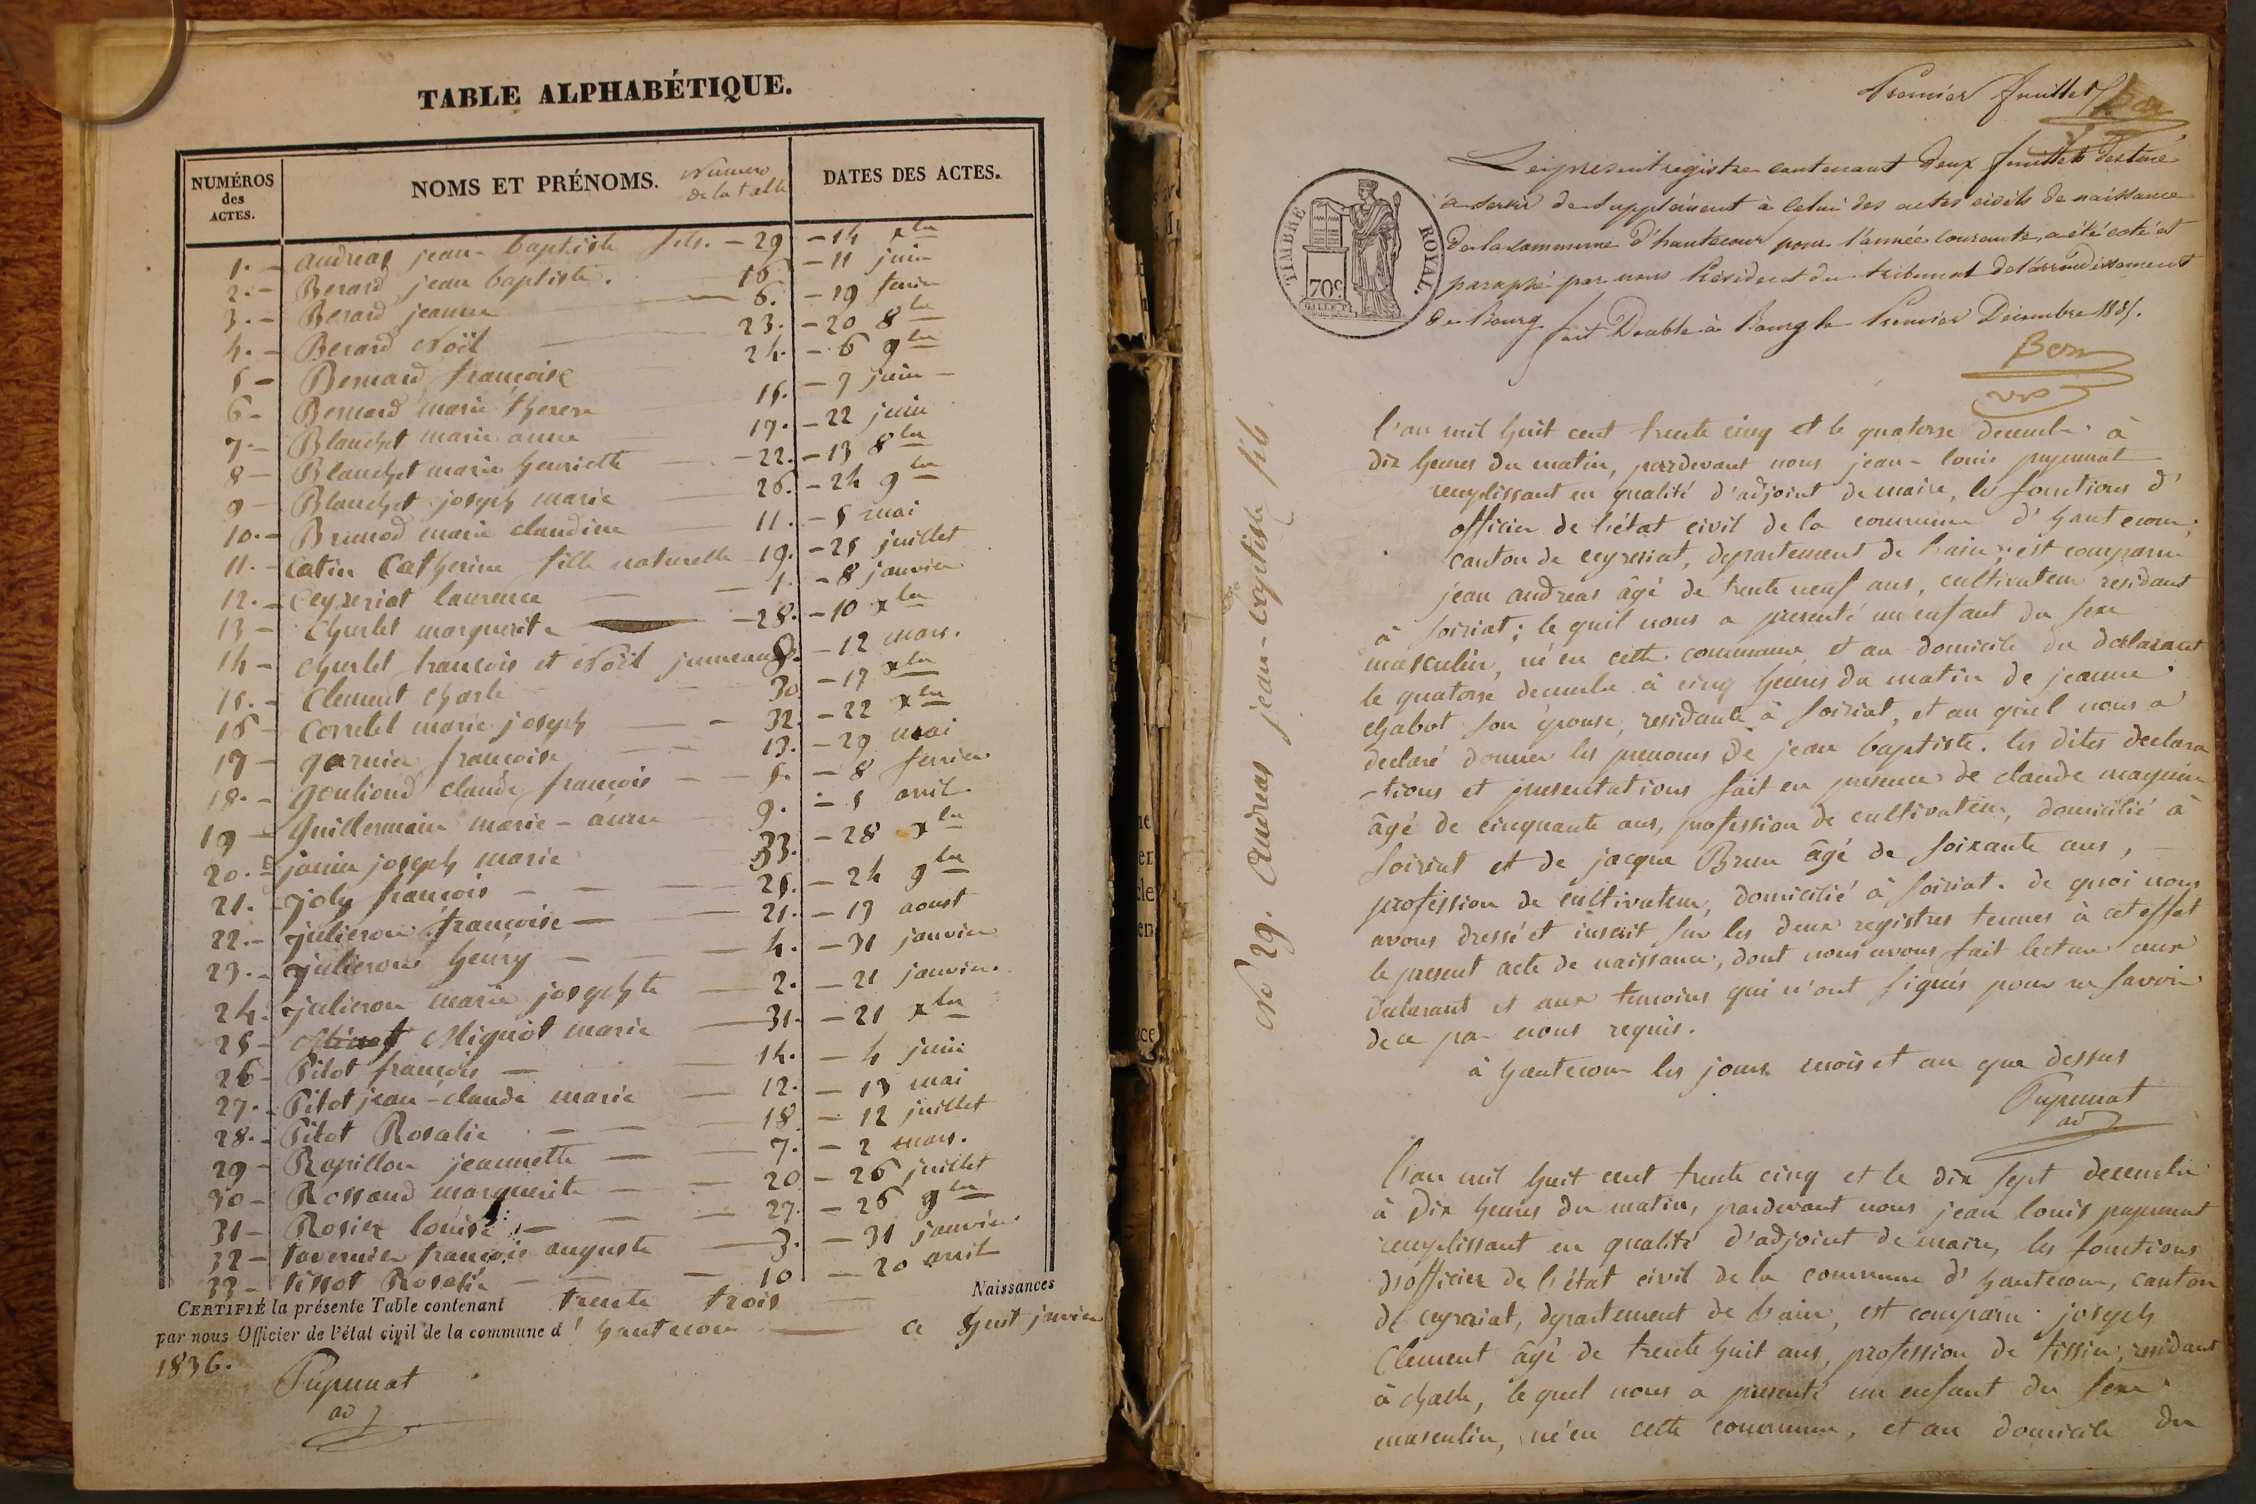 TABLE ALPHABÉTIQUE.
NUMÉROS des ACTES. NOMS ET PRÉNOMS. Numero de la table DATES DES ACTES.
1. – andreas jean-baptiste fils. – 29 – 14 xbre
2. – Berard jean baptiste. 16 – 11 juin
3. – Berard jeanne 6. – 19 fevrier
4. – Berard Noël 23. – 20 8bre
5 – Bernard françoise 24. – 6 9bre
6 – Bernard marie therese 15. – 7 juin –
7 – Blanchet marie anne 17. – 22 juin
8 – Blanchet marie henriette – 22. – 13 8bre
9 – Blanchet joseph marie 26. – 24 9bre
10. – Brunod marie claudine 11. – 5 mai
11. – Catin Catherine fille naturelle 19. – 25 juillet
12. – Ceyzeriat laurence 1. – 8 janvier
13 – Churlet marguerite – 28. – 10 xbre
14 – Churlet francois et Noël jumeaux 8. – 12 mars.
15. – Clement Charle 30 – 17 xbre
16 – Corretel marie joseph – 32. – 22 xbre
17 – garnier francoise 13. – 29 mai
18. – gouliond claude françois – 5. – 8 fevrier
19 – guillermain marie-anne 9. – 5 avril
20. – janin joseph marie 33. – 28 xbre
21. – joly françois – 25. – 24 9bre
22. – julieron françoise – 21. – 13 aoust
23. – julieron henry – 4. – 31 janvier
24. julieron marie josephte 2. – 21 janvier.
25 – Mignot marie 31. – 21 xbre
26 – Pitot françois – 14. – 4 juin
27. – Pitot jean-claude marie 12. – 13 mai
28. – Pitot Rosalie – 18 – 12 juillet
29 – Rapillon jeannette – 7. – 2 mars.
30 – Rossand marguerite – 20 – 26 juillet
31 – Rosier louise – 27. – 26 9bre
32 – tavernier françois auguste 3. – 31 janvier.
33 – tissot Rosalie – 10 – 20 avril
CERTIFIÉ la présente Table contenant trente trois Naissances
par nous Officier de l'état civil de la commune d' hautecour ce huit janvier
1836.
Pupunat
ad
Premier feuillet
Le present registre contenant deux feuillets destiné
à servir de supplément à celui des actes civils de naissance
de la commune d'hautecour pour l'année courante, a été coté et
paraphé par nous President du tribunal de l'arrondissement
de Bourg fait Double à Bourg le Premier Decembre 1835.
TIMBRE ROYAL.
70c.
No 29. Andreas jean-baptiste fils
l'an mil huit cent trente cinq et le quatorse decembre à
dix heures du matin, pardevant nous jean-louis pupunat
remplissant en qualité d'adjoint de maire, les fonctions d'
officier de l'état civil de la commune d'hautecour,
canton de ceyzeriat, departement de l'ain; est comparu
jean andreas âgé de trente neuf ans, cultivateur residant
à Soiriat; lequel nous a presenté un enfant du sexe
masculin, né en cette commune et au domicile du declarant
le quatorse decembre à cinq heures du matin de jeanne
chabot son épouse, residante à Soiriat, et au quel nous a
declaré donner les prenoms de jean baptiste. les dites declara
-tions et presentations fait en presence de claude
âgé de cinquante ans, profession de cultivateur, domicilié à
Soiriat et de jacque Brun âgé de soixante ans, –
profession de cultivateur, domicilié à Soiriat. de quoi nous
avons dressé et inscrit sur les deux registres tenues à cet effet
le present acte de naissance, dont nous avons fait lecture aux
declarant et aux temoins qui n'ont signés pour ne savoir
de ce par nous requis.
à hautecour les jours mois et an que dessus
Pupunat
ad
l'an mil huit cent trente cinq et le dix sept decembre
à Dix heures du matin, pardevant nous jean louis pupunat
remplissant en qualité d'adjoint de maire, les fonctions
d'officier de l'état civil de la commune d'hautecour, canton
de ceyzeriat, departement de l'ain, est comparu joseph
Clement âgé de trente huit ans, profession de tissier, residant
à challe, lequel nous a presenté un enfant du sexe
masculin, né en cette commune, et au domicile du